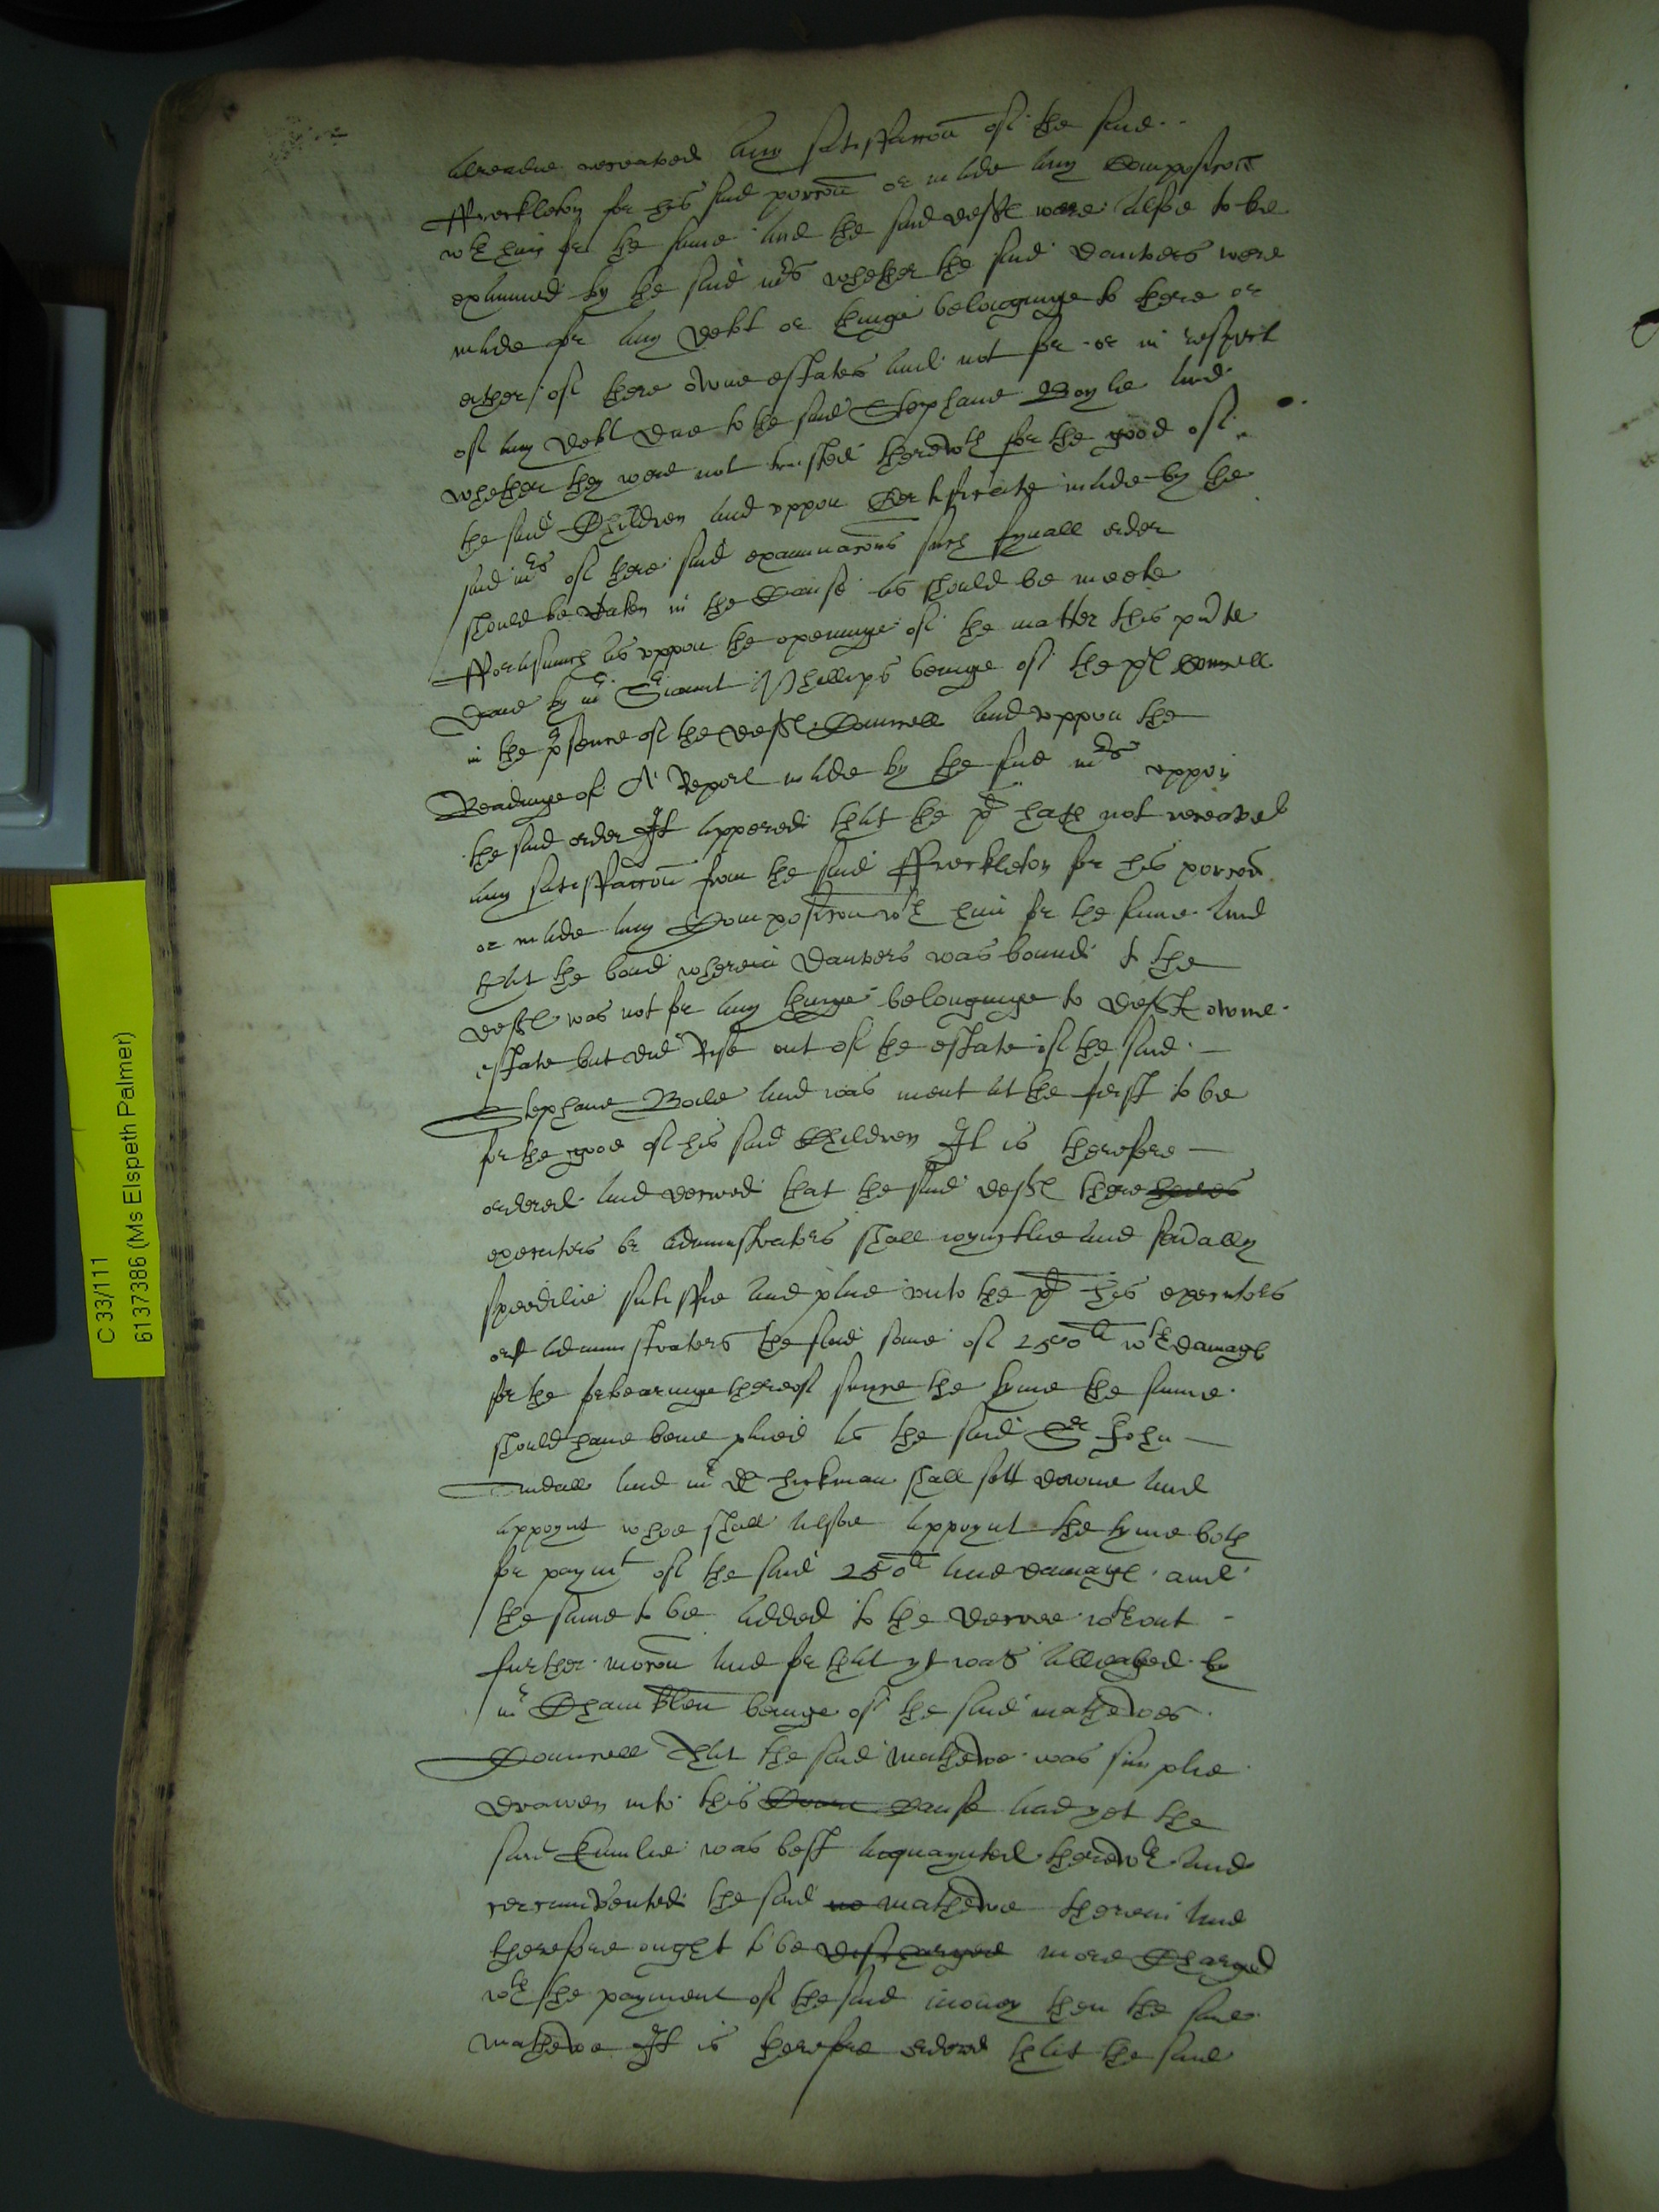 alreadie receaved any satisfaccōn of the said
ffreckleton for his said porcōn or made any Composicōn
wth him for the same And the said defts were alsoe to be
examined by the said mrs whether the said danvers were
made for any debt or thinge belonginge to there or
either of there owne estates and not for or in respect
of any debt due to the said Stephane Boyle and
whether they were not trusted therewth for the good of
the said Children and uppon Certificate made by the
said mrs of there said examinacōns such fynall order
should be taken in the Cause as should be meete
fforasmuch as uppon the openinge of the matter this pnte
daie by mr Sriaunt Phillips beinge of the pl Councell
in the psence of the deftes Councell and uppon the
Readinge of A Report made by the said mrs uppon
the said order It appered that the pl hath not receaved
any satisfaccōn from the said ffreckleton for his porcōn
or made any Composicōn wth him for the same And
that the bond wherein danvers was bound to the
deftes was not for any thinge belonginge to deftes owne
estate but did Rise out of the estate of the said
Stephane Boile and was ment at the first to be
for the good of his said Children It is therefore
ordered and decreed that the said deftes there heires
executors or administrators shall ioyntlie and sevally
speedilie satisfie and paie unto the pl his executors
or administrators the said some of 250li wth damages
for the forbearinge thereof since the tyme the same
should have bene paied as the said Sr John
Tindall and mr D Hickman shall sett downe and
appoynt whoe shall alsoe appoynt the tyme both
for paymt of the said 250li and damages and
the same to be added to the decree wthout
further mocōn And for that yt was alleaged by
mr Chamblen beinge of the said mathewes
Councell That the said mathewe was simplie
drawen into this Coure Cause and yet the
said was best acquaynted therewth and
circumvented the said me mathewe therein and
therefore ought to be discharged more Charged
wth the payment of the said money then the said
mathewe It is therefore ordered that the said
C 33/111
6137386 (Ms Elspeth Palmer)